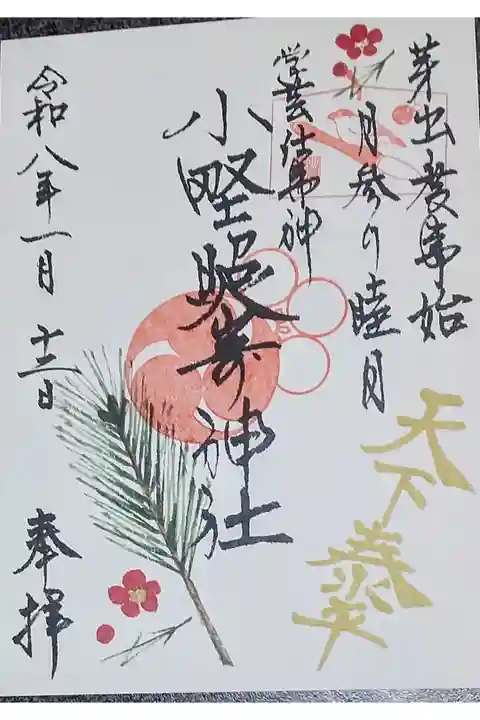 芽出度事始
月参り睦月
学芸仕事神
小野照崎神社
令和八年一月十三日
奉拝
天下泰平